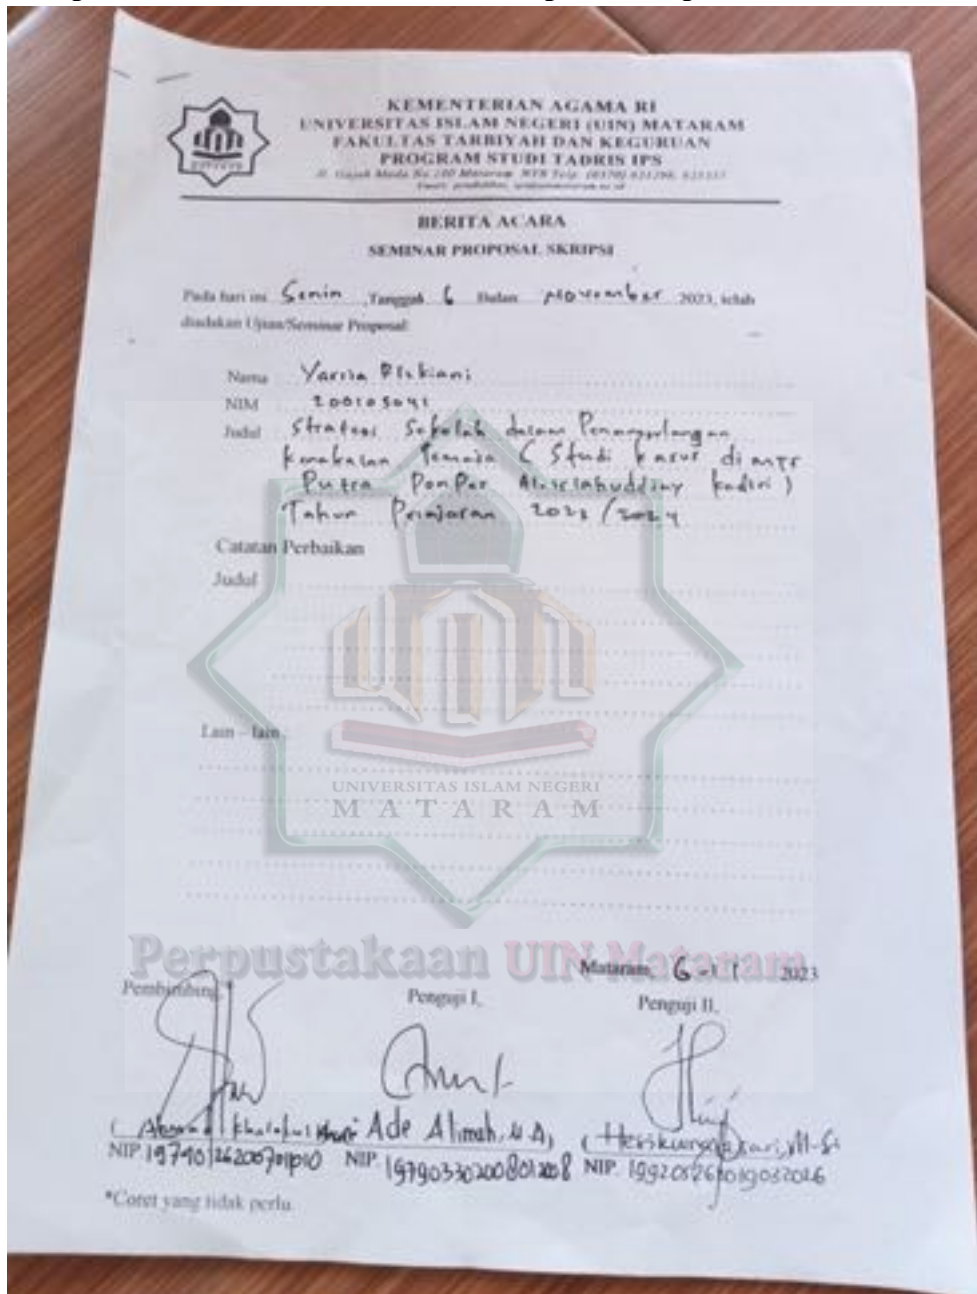 KEMENTERIAN AGAMA RI
UNIVERSITAS ISLAM NEGERI (UIN) MATARAM
FAKULTAS TARBIYAH DAN KEGURUAN
PROGRAM STUDI TADRIS IPS
Jl. Gajah Mada No. 100 Mataram NTB Telp. (0370)
BERITA ACARA
SEMINAR PROPOSAL SKRIPSI
Pada hari ini Senin ,Tanggal 6 Bulan November 2023, telah
diadakan Ujian/Seminar Proposal:
Nama Yarina
NIM
Judul Strategi Sekolah dalam Penanggulangan
Kenakalan Remaja ( Studi kasus di MTs
Putra PonPes Al-Islahuddiny kediri )
Tahun Pelajaran 2023/2024
Catatan Perbaikan
Judul
Lain - lain
UNIVERSITAS ISLAM NEGERI
MATARAM
Perpustakaan UIN Mataram
Mataram, 6 - 11 2023
Pembimbing, Penguji I, Penguji II,
( Ade Alimah, M.A) ( M.Si
NIP. NIP. 197903302008012008 NIP.
*Coret yang tidak perlu.